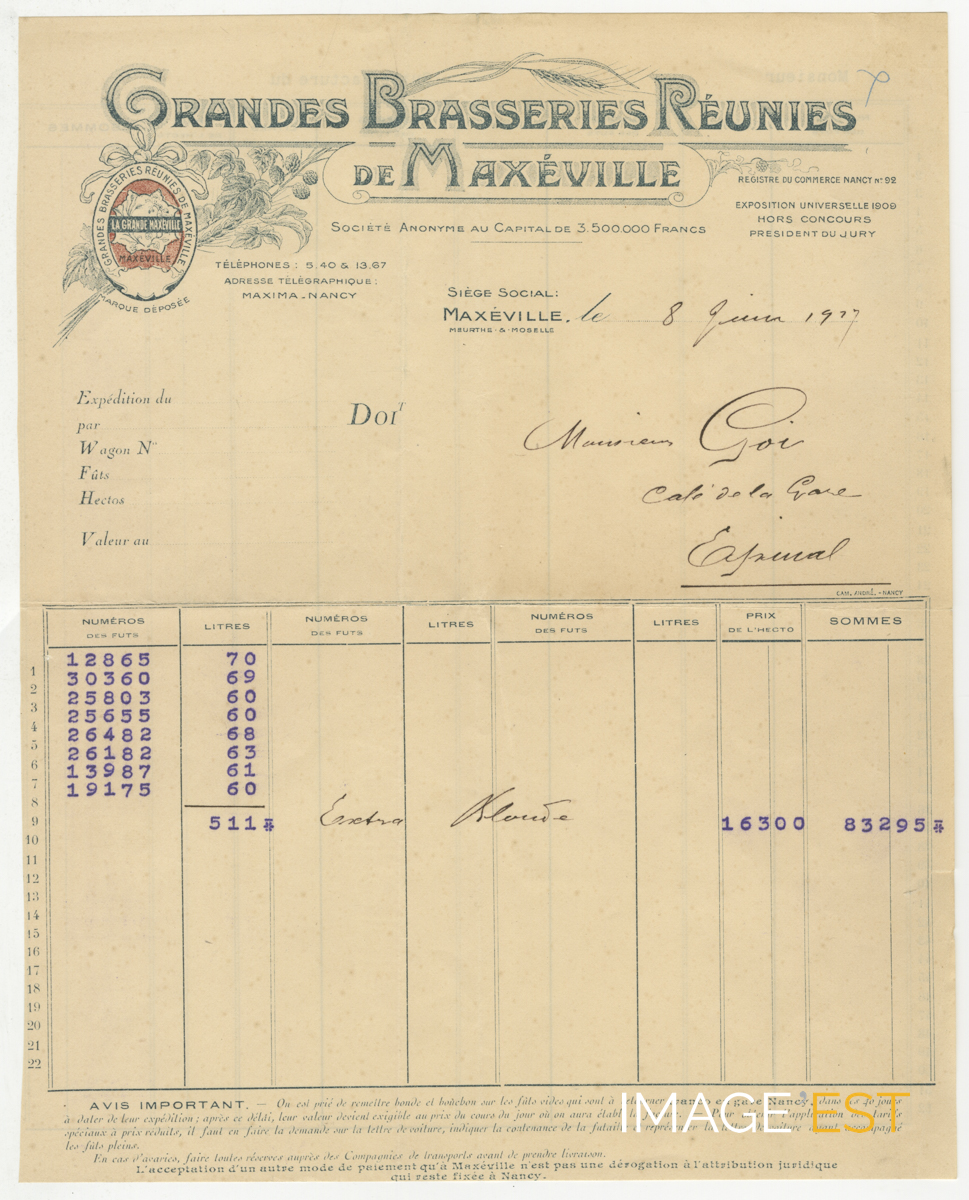 GRANDES BRASSERIES RÉUNIES
DE MAXÉVILLE
GRANDES BRASSERIES REUNIES DE MAXÉVILLE
LA GRANDE MAXÉVILLE
MAXÉVILLE
MARQUE DÉPOSÉE
REGISTRE DU COMMERCE NANCY N° 92
EXPOSITION UNIVERSELLE 1909
HORS CONCOURS
PRESIDENT DU JURY
SOCIÉTÉ ANONYME AU CAPITAL DE 3.500.000 FRANCS
TÉLÉPHONES : 5.40 & 13.67
ADRESSE TÉLÉGRAPHIQUE :
MAXIMA-NANCY
SIÈGE SOCIAL:
MAXÉVILLE, le 8 Juin 1927
MEURTHE-&-MOSELLE
Expédition du
par
Wagon N°
Fûts
Hectos
Valeur au
DOIT
Monsieur Goi
Café de la Gare
Epinal
CAM. ANDRÉ.-NANCY
NUMÉROS DES FUTS LITRES NUMÉROS DES FUTS LITRES NUMÉROS DES FUTS LITRES PRIX DE L'HECTO SOMMES
1 12865 70
2 30360 69
3 25803 60
4 25655 60
5 26482 68
6 26182 63
7 13987 61
8 19175 60
9 511* Extra Blonde 16300 83295*
10
11
12
13
14
15
16
17
18
19
20
21
22
AVIS IMPORTANT. — On est prié de remettre bonde et bondon sur les fûts vides qui sont à retourner franco en gare Nancy, dans les 40 jours
à dater de leur expédition ; après ce délai, leur valeur devient exigible au prix du cours du jour où on aura établi la facture. — Pour obtenir l'application des tarifs
spéciaux à prix réduits, il faut en faire la demande sur la lettre de voiture, indiquer la contenance de la futaille et représenter la lettre de voiture ayant accompagné
les fûts pleins.
En cas d'avaries, faire toutes réserves auprès des Compagnies de transports avant de prendre livraison.
L'acceptation d'un autre mode de paiement qu'à Maxéville n'est pas une dérogation à l'attribution juridique
qui reste fixée à Nancy.
IMAGE'EST